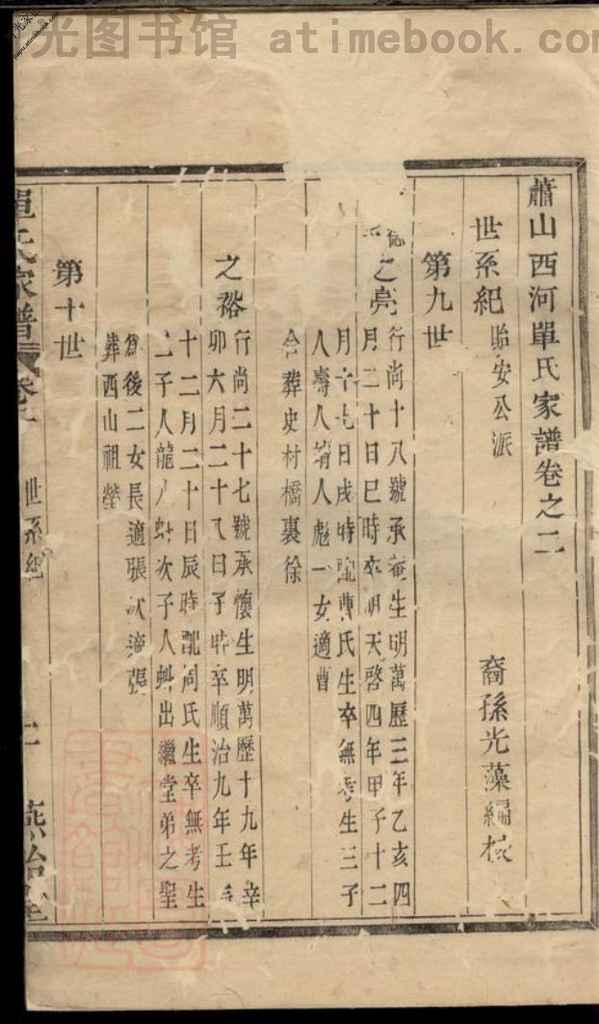 光图书馆 atimebook.com
蕭山西河單氏家譜卷之二
裔孫光藻編
世系紀 貽安公派
第九世
之亮 行尚十八號承菴生明萬歷三年乙亥四
月二十日巳時卒明天啓四年甲子十二
月十七日戌時配曹氏生卒無考生三子
人壽人 人彪一女適曹
合葬史村橋裏徐
之裕 行尚二十七號承懷生明萬歷十九年辛
卯六月二十 日子時卒順治九年壬
十二月二十日辰時配周氏生卒無考生
二子人龍 次子人 出繼堂弟之聖
爲後二女長適張次適張
葬西山祖塋
第十世
單氏家譜 世系紀